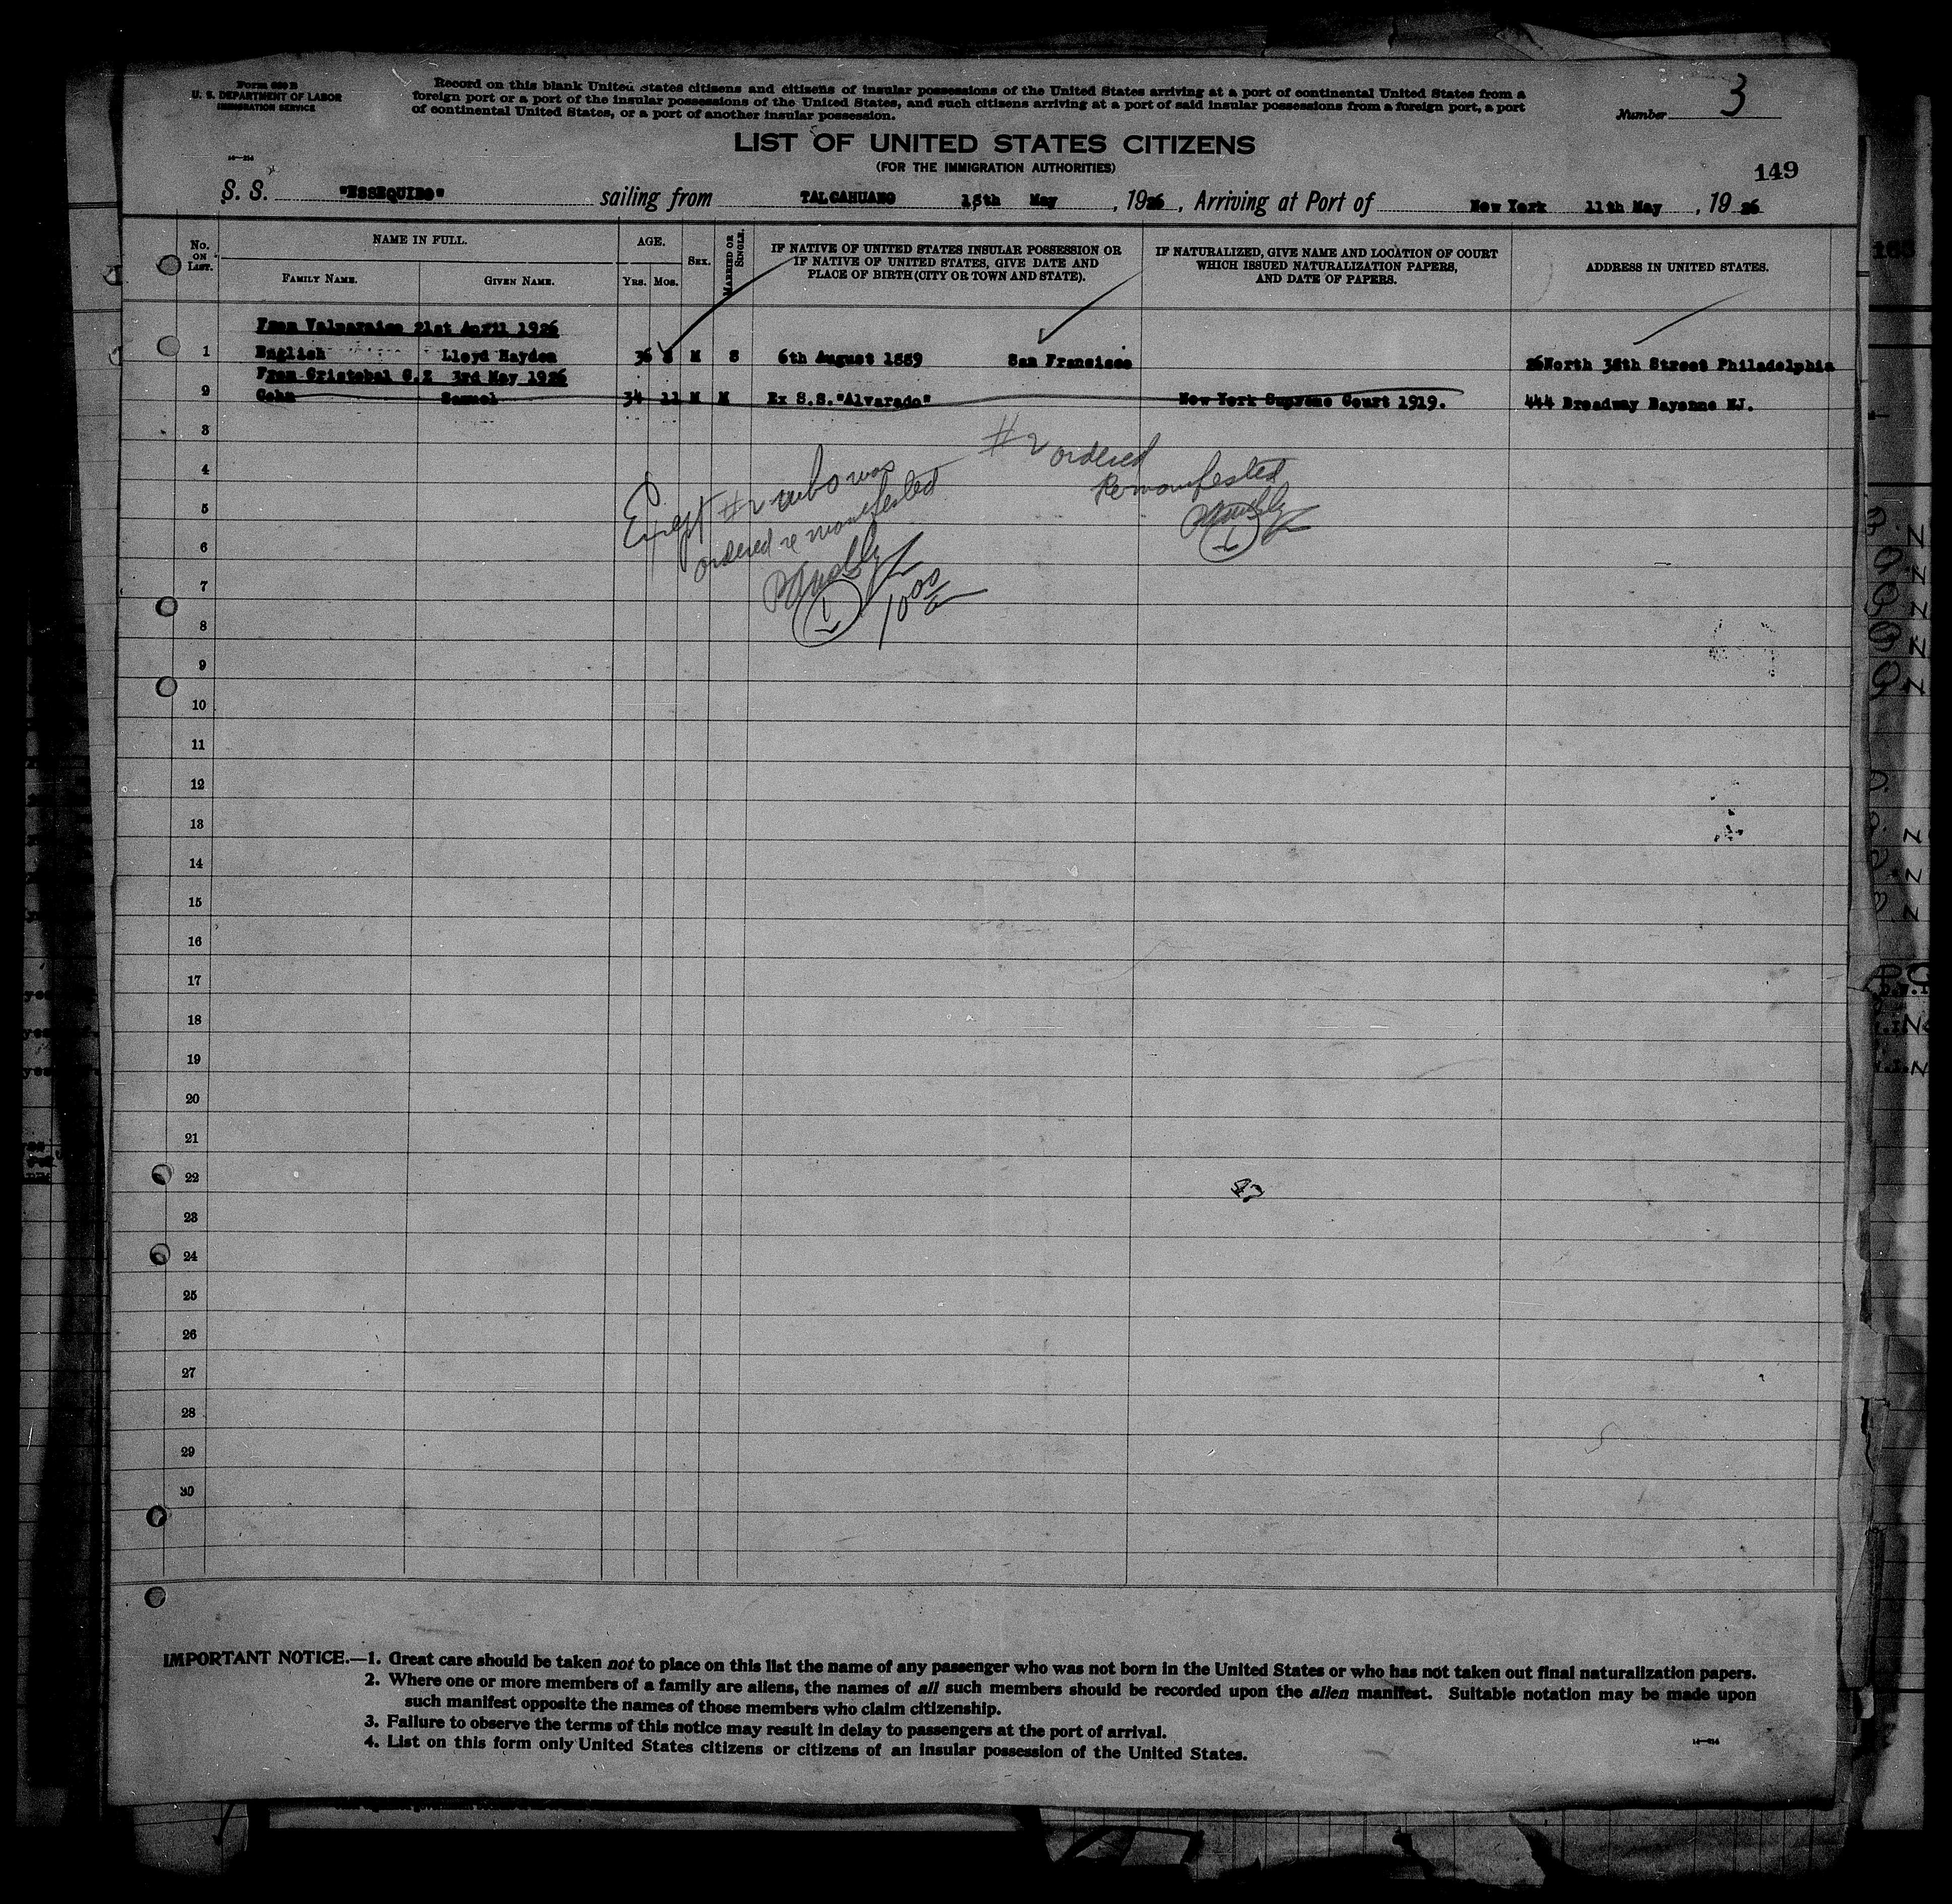 Form 630 B
U. S. DEPARTMENT OF LABOR
IMMIGRATION SERVICE
Record on this blank United States citizens and citizens of insular possessions of the United States arriving at a port of continental United States from a
foreign port or a port of the insular possessions of the United States, and such citizens arriving at a port of said insular possessions from a foreign port, a port
of continental United States, or a port of another insular possession.
Number 3
LIST OF UNITED STATES CITIZENS
(FOR THE IMMIGRATION AUTHORITIES)
149
S. S. "ESSEQUIBO" sailing from TALCAHUANO 15th May, 1926, Arriving at Port of New York 11th May, 1926
No. ON LIST.
NAME IN FULL.
FAMILY NAME. GIVEN NAME.
AGE.
YRS. MOS.
SEX.
MARRIED OR SINGLE.
IF NATIVE OF UNITED STATES INSULAR POSSESSION OR
IF NATIVE OF UNITED STATES, GIVE DATE AND
PLACE OF BIRTH (CITY OR TOWN AND STATE).
IF NATURALIZED, GIVE NAME AND LOCATION OF COURT
WHICH ISSUED NATURALIZATION PAPERS,
AND DATE OF PAPERS.
ADDRESS IN UNITED STATES.
From Valparaiso 21st April 1926
1 English Lloyd Hayden 36 8 M S 6th August 1889 San Francisco 26North 38th Street Philadelphia
From Cristobal C.Z 3rd May 1926
2 Cohn Samuel 34 11 M M Ex S.S."Alvarado" New York Supreme Court 1919. 444 Broadway Bayonne NJ.
3
#2 ordered
Remanifested
4
Except #2 who was
ordered remanifested
5
6
7
10 00
8
9
10
11
12
13
14
15
16
17
18
19
20
21
22
47
23
24
25
26
27
28
29
30
IMPORTANT NOTICE.—1. Great care should be taken not to place on this list the name of any passenger who was not born in the United States or who has not taken out final naturalization papers.
2. Where one or more members of a family are aliens, the names of all such members should be recorded upon the alien manifest. Suitable notation may be made upon
such manifest opposite the names of those members who claim citizenship.
3. Failure to observe the terms of this notice may result in delay to passengers at the port of arrival.
4. List on this form only United States citizens or citizens of an insular possession of the United States.